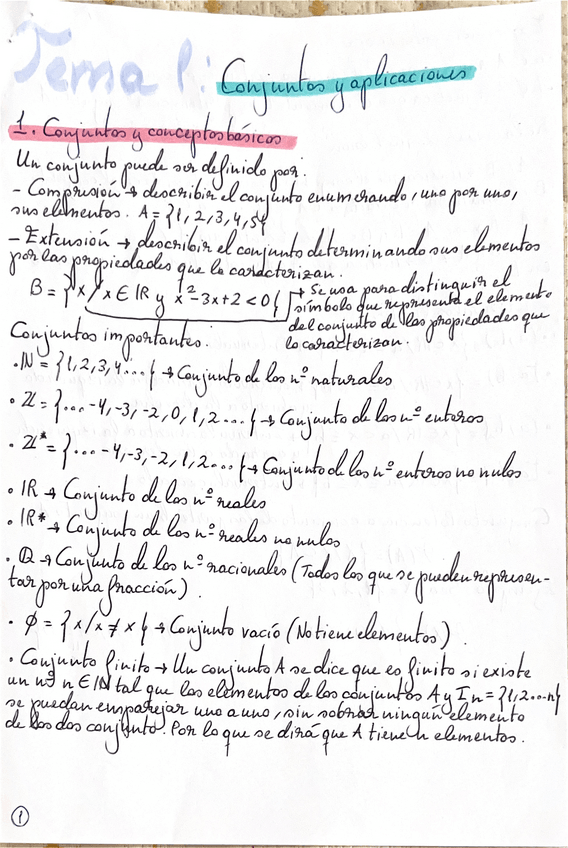 Tema 1:
Conjuntos y aplicaciones
1. Conjuntos y conceptos básicos
Un conjunto puede ser definido por:
- Compresión → describir el conjunto enumerando, uno por uno,
sus elementos. A = {1, 2, 3, 4, 5}
- Extensión → describir el conjunto determinando sus elementos
por las propiedades que la caracterizan.
B = {x / x ∈ IR y x² - 3x + 2 < 0}
→ Se usa para distinguir el
símbolo que representa el elemento
del conjunto de las propiedades que
lo caracterizan.
Conjuntos importantes:
· IN = {1, 2, 3, 4....} → Conjunto de los nº naturales
· Z = {... -4, -3, -2, 0, 1, 2....} → Conjunto de los nº enteros
· Z* = {... -4, -3, -2, 1, 2...} → Conjunto de los nº enteros no nulos
· IR → Conjunto de los nº reales
· IR* → Conjunto de los nº reales no nulos
· Q → Conjunto de los nº racionales (Todos los que se pueden represen-
tar por una fracción).
· ∅ = {x / x ≠ x} → Conjunto vacío (No tiene elementos).
· Conjunto finito → Un conjunto A se dice que es finito si existe
un nº n ∈ IN tal que los elementos de los conjuntos A y In = {1, 2...n}
se puedan emparejar uno a uno, sin sobrar ningún elemento
de los dos conjunto. Por lo que se dirá que A tiene n elementos.
1